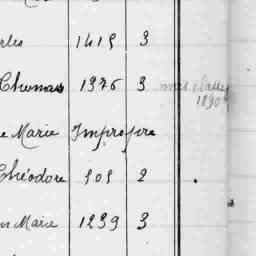 rles 1419 3
Thomas 1376 3 mal classé
1890
e Marie Impropre
Théodore 505 2
n Marie 1239 3